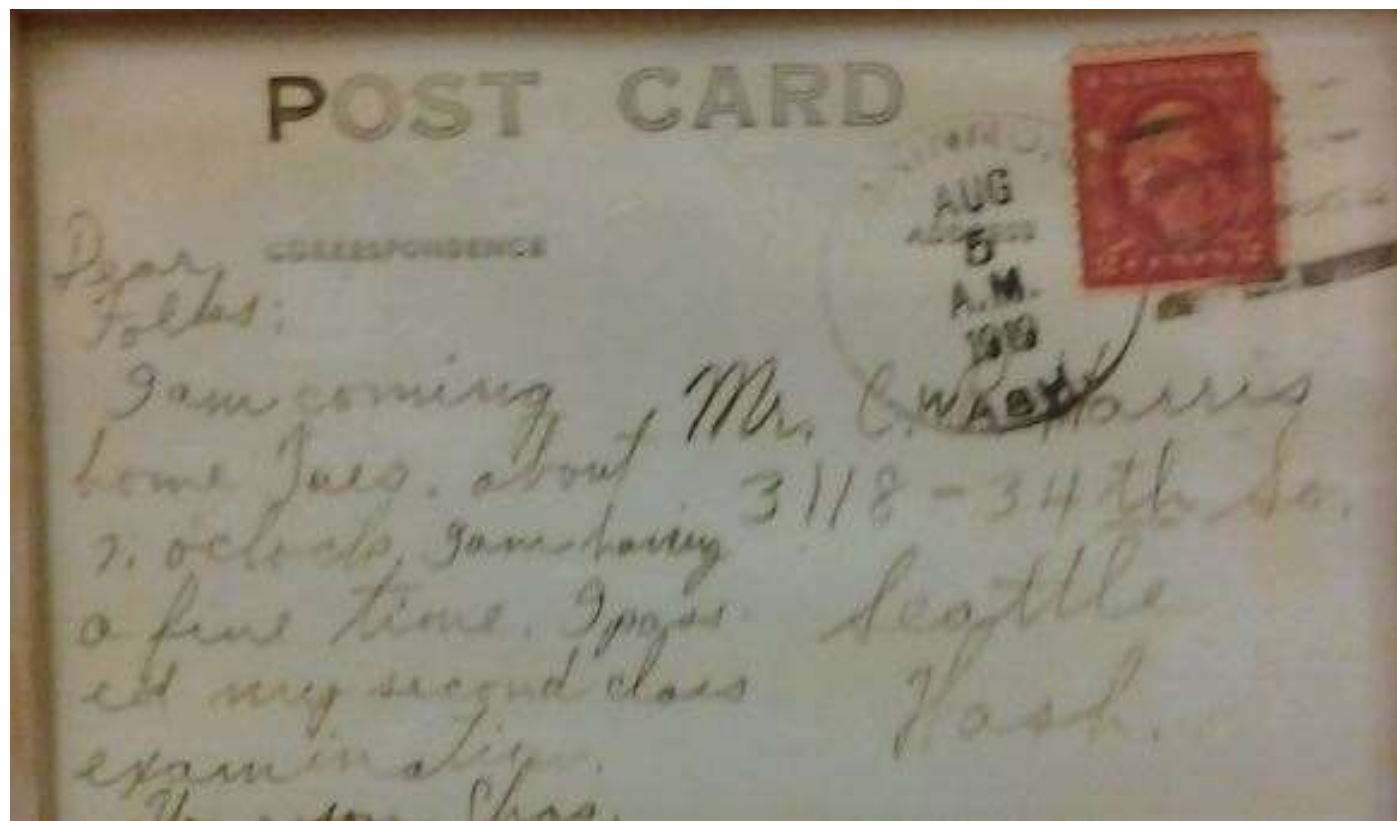 POST CARD
CORRESPONDENCE
AUG
ADDRESS
5
A.M.
1919
WASH.
Dear
Folks:
I am coming
home Tues. about
7. o'clock, I am having
a fine time. I pass-
ed my second class
examination.
Your son Chas.
Mr. C. Harris
3118 - 34th So.
Seattle
Wash.